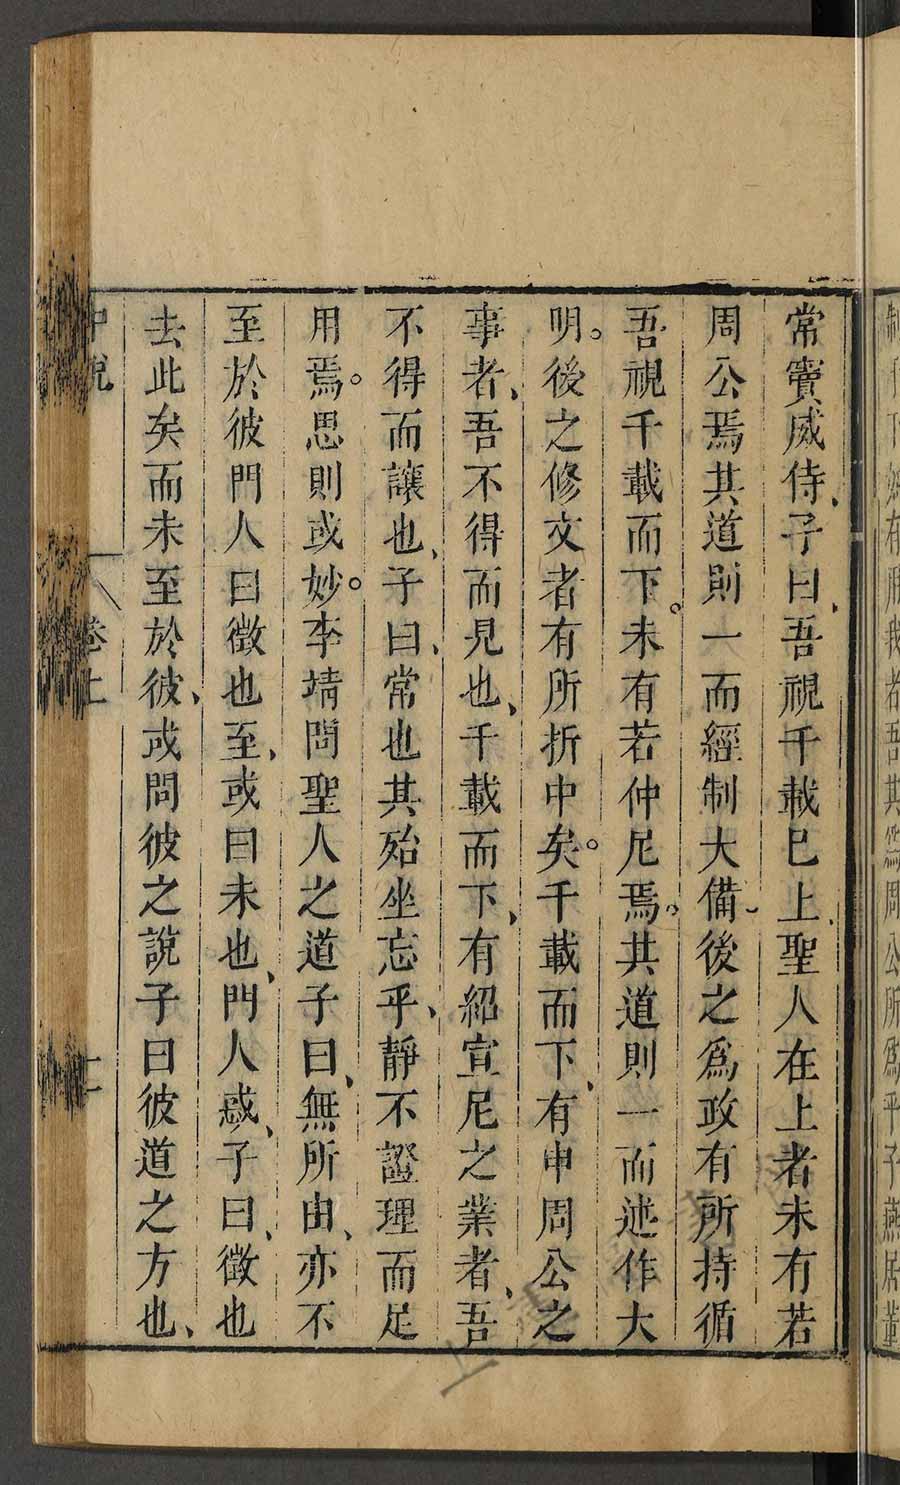 有用我者吾其爲周公所爲乎子燕居董
常竇威侍、子曰、吾視千載已上、聖人在上者未有若
周公焉其道則一而經制大備、後之爲政有所持循
吾視千載而下。未有若仲尼焉。其道則一而述作大
明。後之修文者有所折中矣。千載而下、有申周公之
事者、吾不得而見也、千載而下、有紹宣尼之業者、吾
不得而讓也、子曰、常也其殆坐忘乎、靜不證理而足
用焉。思則或妙。李靖問聖人之道子曰、無所由、亦不
至於彼門人曰徵也至、或曰未也、門人惑、子曰、徵也
去此矣而未至於彼、或問彼之說子曰彼道之方也、
中說 卷上